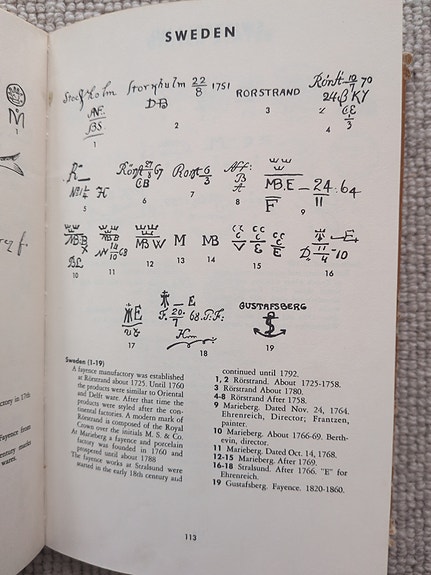 SWEDEN
Stockholm
AF.
BS.
1
Storhulm 22/8 1751
DB
2
RORSTRAND
3
Rörst 12/7 70
24 B KY
4
R–
No 1/4 H
5
Rörst 27/8 67
CB
6
Rorst 6/3
7
Aff:
B
A
8
MB.E – 24. 64
F 11
9
MB:B
X
BL
10
MB:B
14/10 68
11
MB W
12
M
13
MB
14
15
E.
4 -10
16
E
17
E
F. 20/7 68. P.F.
Hm
18
GUSTAFSBERG
19
Sweden (1-19)
A fayence manufactory was established
at Rörstrand about 1725. Until 1760
the products were similar to Oriental
and Delft ware. After that time the
products were styled after the con-
tinental factories. A modern mark of
Rörstrand is composed of the Royal
Crown over the initials M. S. & Co.
At Marieberg a fayence and porcelain
factory was founded in 1760 and
prospered until about 1788
The fayence works at Stralsund were
started in the early 18th century and
continued until 1792.
1, 2 Rörstrand. About 1725-1758.
3 Rörstrand About 1780.
4-8 Rörstrand After 1758.
9 Marieberg. Dated Nov. 24, 1764.
Ehrenreich, Director; Frantzen,
painter.
10 Marieberg. About 1766-69. Berth-
evin, director.
11 Marieberg. Dated Oct. 14, 1768.
12-15 Marieberg. After 1769.
16-18 Stralsund. After 1766. "E" for
Ehrenreich.
19 Gustafsberg. Fayence. 1820-1860.
113
M
ctory in 17th
Fayence from
entury marks
wares.